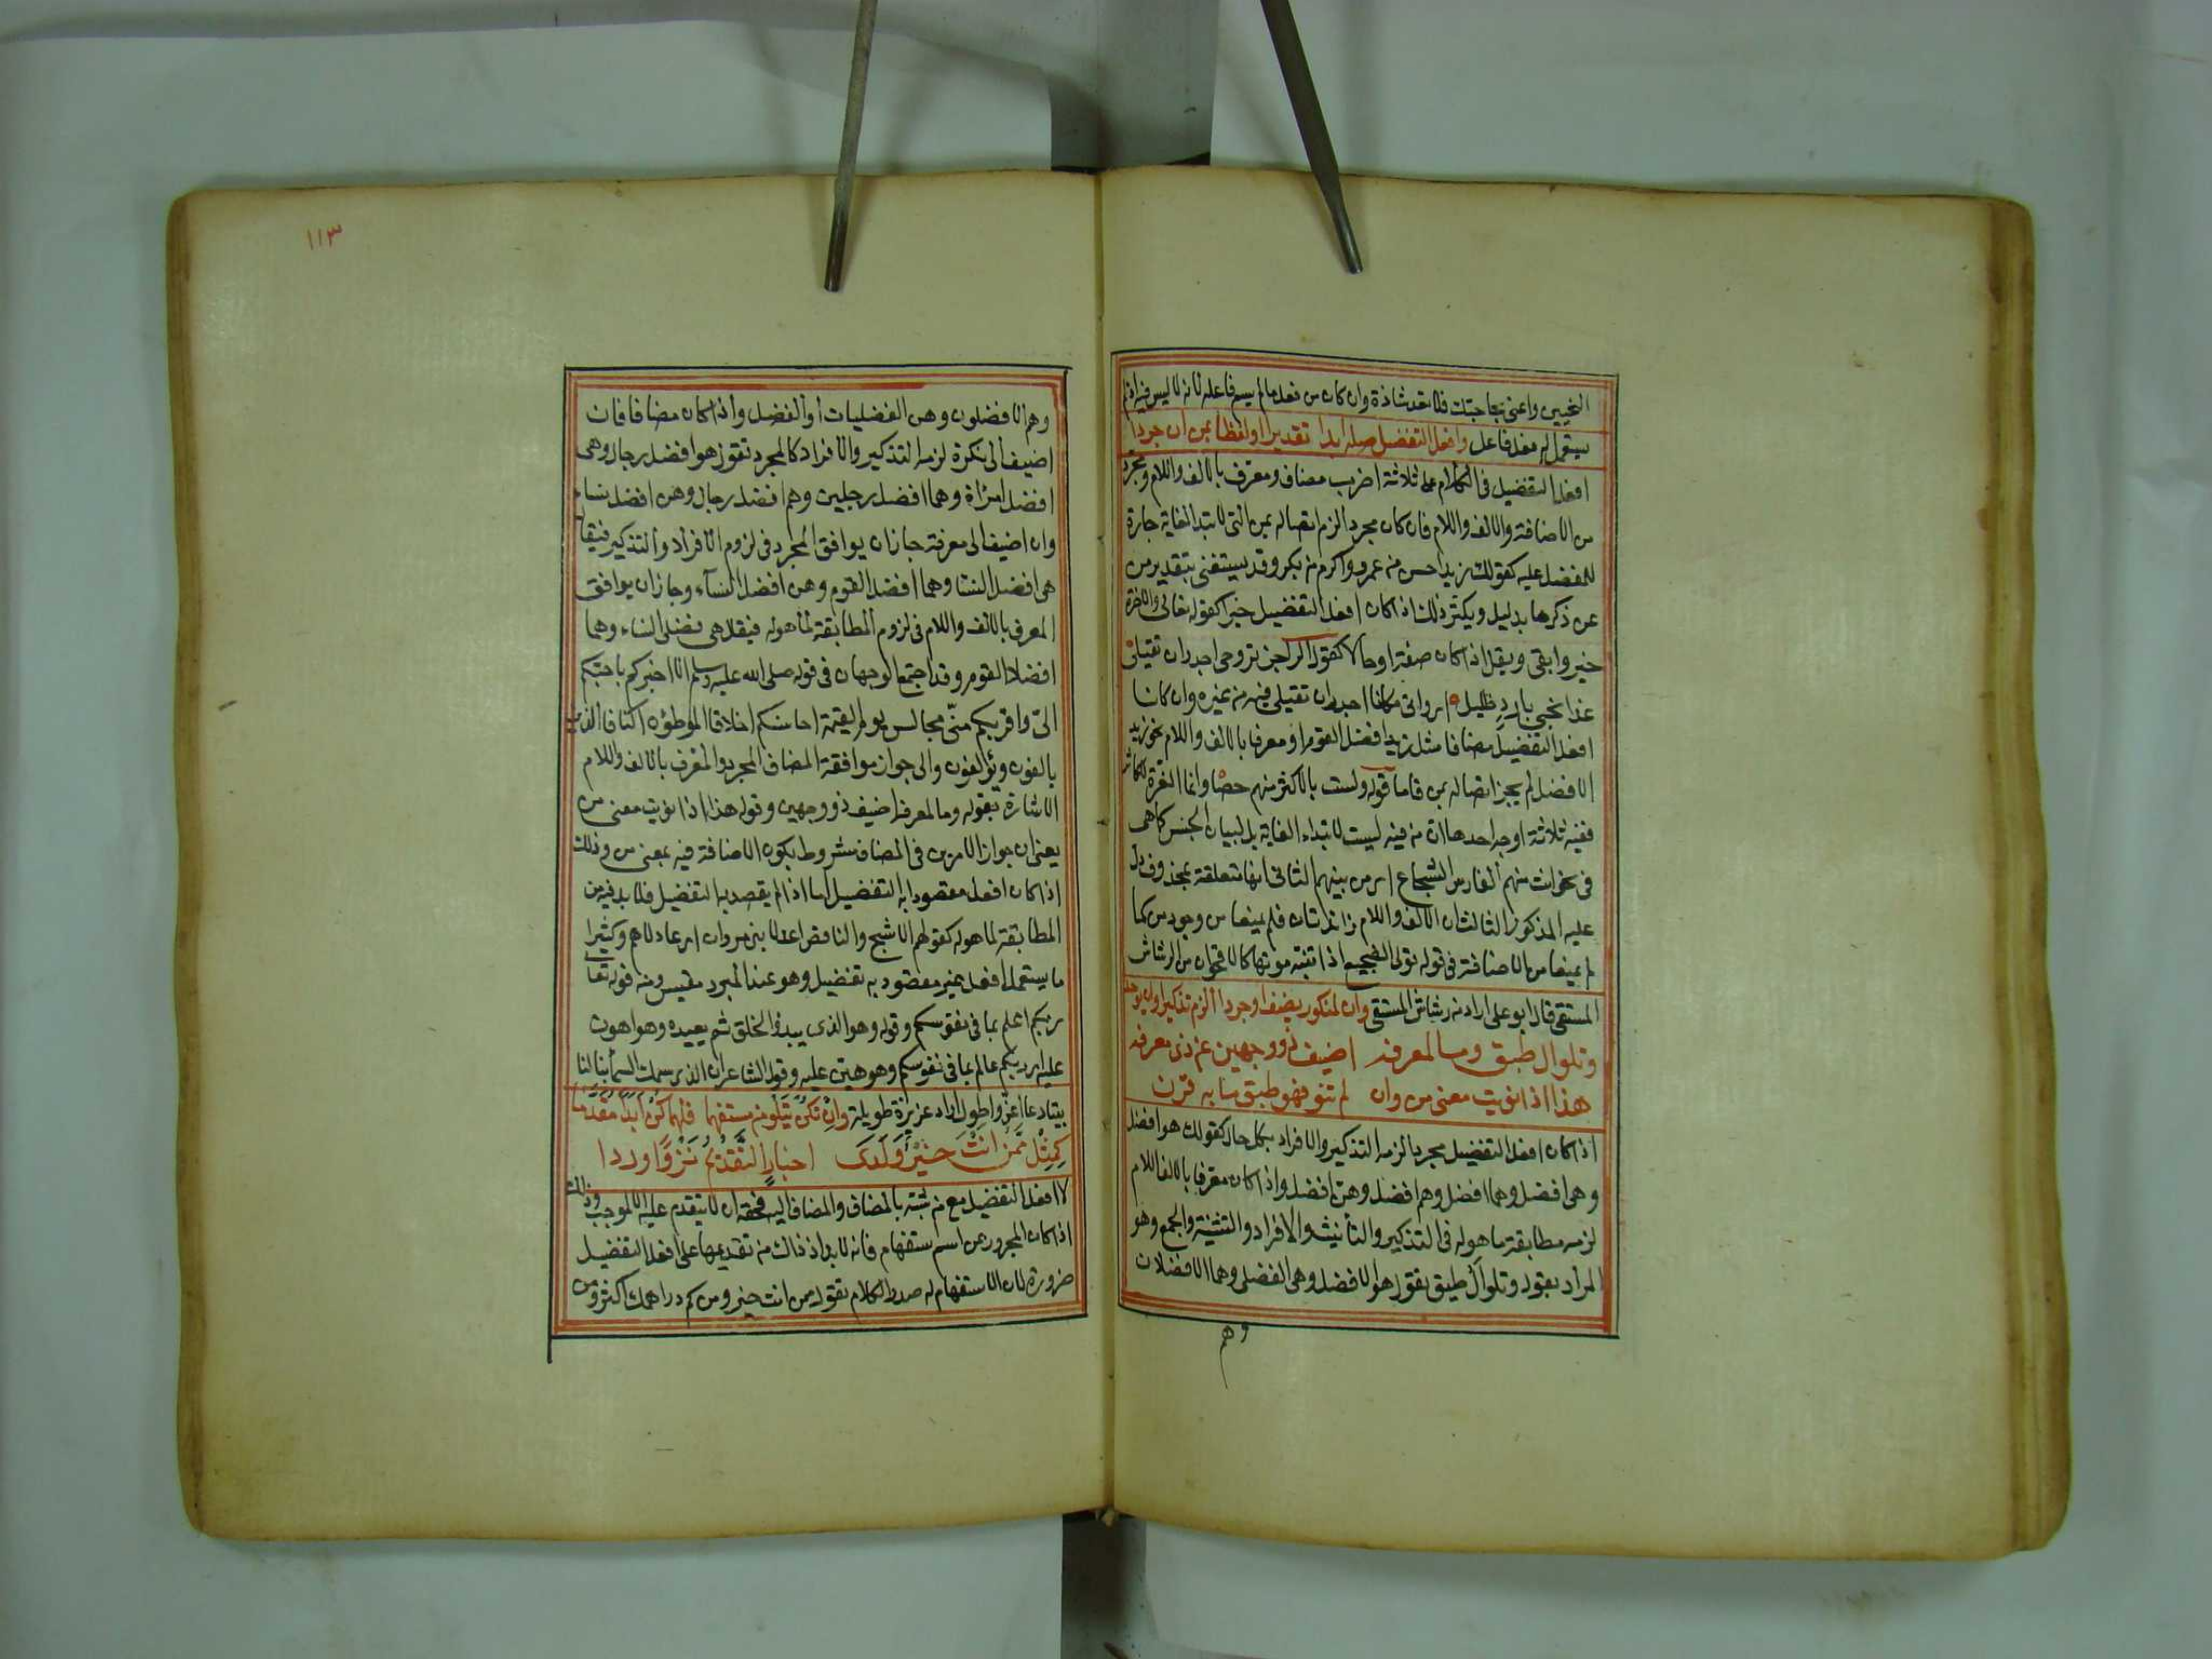 النحيين واعنى بحاجتك فلا تعد شاذة وان كان من فعل ما لم يسم فاعله لانه لا ليس فيه اذ لم
يستعمل له فعل فاعل وافعل التفضيل صله ابدا تقديرا او لفظا بمن ان جردا
افعل التفضيل فى الكلام على ثلاثة اضرب مضاف ومعرف بالالف واللام ومجرد
من الاضافة والالف واللام فان كان مجردا لزم اتصاله بمن التى لابتدا الغاية جارة
للمفضل عليه كقولك زيد احسن من عمرو واكرم من بكر وقد يستغنى بتقدير من
عن ذكرها بدليل ويكثر ذلك اذا كان افعل التفضيل خبرا كقوله تعالى والاخرة
خير وابقى ويقل اذا كان صفة او حالا كقول الراجز تروحى اجدر ان تقيلى
غدا بجنبى بارد ظليل اى واتى مكانا اجدر ان تقيلى فيه من غيره وان كان
افعل التفضيل مضافا مثل زيد افضل القوم او معرفا بالالف واللام نحو زيد
الافضل لم يجز اتصاله بمن فاما قوله ولست بالاكثر منهم حصا وانما العزة للكاثر
ففيه ثلاثة اوجه احدها ان من فيه ليست لابتداء الغاية بل لبيان الجنس كما هى
فى نحو انت منهم الفارس الشجاع اى من بينهم الثانى انها متعلقة بمحذوف دل
عليه المذكور الثالث ان الالف واللام زائدتان فلم يمنعا من وجود من كما
لم يمنعا من الاضافة فى قوله تولى الضجيع اذا تنبه موهنا كالاقحوان من الرشاش
المستقى قال ابو على اراد من رشاش المستقى وان لمنكور يضف او جردا الزم تذكيرا وان يوحدا
وتلو ال طبق وما لمعرفه اضيف ذو وجهين عن ذى معرفه
هذا اذا نويت معنى من وان لم تنو فهو طبق ما به قرن
اذا كان افعل التفضيل مجردا لزمه التذكير والافراد بكل حال كقولك هو افضل
وهى افضل وهما افضل وهم افضل وهن افضل واذا كان معرفا بالالف اللام
لزمه مطابقة ما هو له فى التذكير والتأنيث والافراد والتثنية والجمع وهو
المراد بقوله وتلو ال طبق تقول هو الافضل وهى الفضلى وهما الافضلان
وهم
١١٣
وهم الافضلون وهن الفضليات او الفضل واذا كان مضافا فان
اضيف الى نكرة لزمه التذكير والافراد كالمجرد تقول هو افضل رجل وهى
افضل امرأة وهما افضل رجلين وهم افضل رجال وهن افضل نساء
وان اضيف الى معرفة جاز ان يوافق المجرد فى لزوم الافراد والتذكير فيقال
هى افضل النسا وهما افضل القوم وهن افضل النسآء وجاز ان يوافق
المعرف بالالف واللام فى لزوم المطابقة لما هو له فيقال هى فضلى النساء وهما
افضلا القوم وقد اجتمع الوجهان فى قوله صلى الله عليه وسلم الا اخبركم باحبكم
الى واقربكم منى مجالس يوم القيمة احاسنكم اخلاقا الموطؤن اكنافا الذين
يالفون ويؤلفون والى جواز موافقة المضاف المجرد والمعرف بالالف واللام
الاشارة بقوله وما لمعرفه اضيف ذو وجهين وقوله هذا اذا نويت معنى من
يعنى ان جواز الامرين فى المضاف مشروط بكون الاضافة فيه بمعنى من وذلك
اذا كان افعل مقصودا به التفضيل اما اذا لم يقصد به التفضيل فلا بد فيه من
المطابقة لما هو له كقولهم الاشج والناقص اعدلا بنى مروان اى عادلاهم وكثيرا
ما يستعمل افعل غير مقصود به تفضيل وهو عند المبرد مقيس ومنه قوله تعا
ربكم اعلم بما فى نفوسكم وقوله وهو الذى يبدؤ الخلق ثم يعيده وهو اهون
عليه اى ربكم عالم بما فى نفوسكم وهو هين عليه وقول الشاعر ان الذى سمك السمآ بنا لنا
بيتا دعائمه اعز واطول اراد عزيزة طويلة وان تكن بتلو من مستفهما فلهما كن ابدا مقدما
كمثل ممن انت خير ولدى اخبار التقديم نزرا وردا
لا افعل التفضيل مع من شبه بالمضاف والمضاف اليه فحقه ان لا يتقدم عليه الا لموجب وذلك
اذا كان المجرور من اسم ستفهام فانه لا بد اذ ذاك من تقديمها على افعل التفضيل
ضرورة لان الاستفهام له صدر الكلام تقول ممن انت خير ومن كم دراهمك اكثر ومن